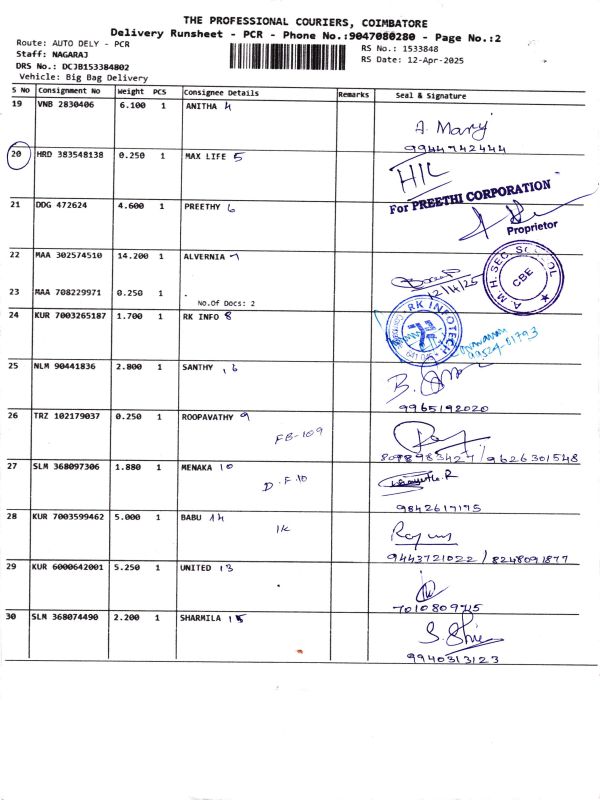 THE PROFESSIONAL COURIERS, COIMBATORE
Delivery Runsheet - PCR - Phone No.:9047080280 - Page No.:2
Route: AUTO DELY - PCR
RS No.: 1533848
Staff: NAGARAJ
RS Date: 12-Apr-2025
DRS No.: DCJB153384802
Vehicle: Big Bag Delivery
S No Consignment No Weight PCS Consignee Details Remarks Seal & Signature
19 VNB 2830406 6.100 1 ANITHA 4
A. Mary
9944742444
20 HRD 383548138 0.250 1 MAX LIFE 5
HIL
For PREETHI CORPORATION
Proprietor
21 DDG 472624 4.600 1 PREETHY 6
22 MAA 302574510 14.200 1 ALVERNIA 7
12/4/25
A. M. H. SEC. SCHOOL
CBE
23 MAA 708229971 0.250 1
No.Of Docs: 2
24 KUR 7003265187 1.700 1 RK INFO 8
RK INFOTECH
25 NLM 90441836 2.800 1 SANTHY 16
9965192020
26 TRZ 102179037 0.250 1 ROOPAVATHY 9
FB-109
8098983427 / 9626301548
27 SLM 368097306 1.880 1 MENAKA 10
D.F.10
9842617175
28 KUR 7003599462 5.000 1 BABU 14
1K
9443721022 / 8248091877
29 KUR 6000642001 5.250 1 UNITED 13
7010809715
30 SLM 368074490 2.200 1 SHARMILA 15
9940313123